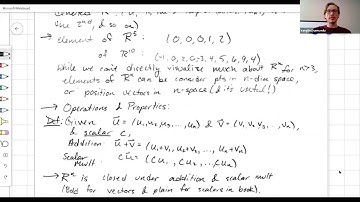 the 2nd, & so on)
→ element of R⁵: (0,0,0,1,2)
of R¹⁰: (-1,0,2,0,-3,4,5,6,9,4)
While we can't directly visualize much about Rⁿ for n>3,
elements of Rⁿ can be consider pts in n-dim space,
or position vectors in n-space (& its useful!)
→ Operations & Properties:
Def: Given ū = (u₁,u₂,u₃,...,uₙ) & v̄ = (v₁,v₂,v₃,...,vₙ),
& scalar c,
Addition: ū+v̄ = (u₁+v₁, u₂+v₂, ..., uₙ+vₙ)
Scalar Mult. cū = (cu₁, cu₂, ..., cuₙ)
→ Rⁿ is closed under addition & scalar mult
(Bold for vectors & plain for scalars in book).